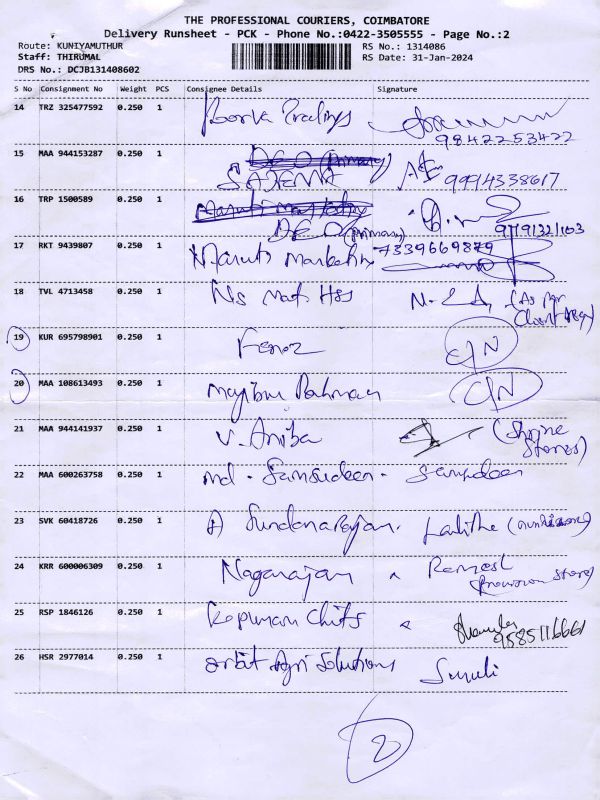 THE PROFESSIONAL COURIERS, COIMBATORE
Delivery Runsheet - PCK - Phone No.:0422-3505555 - Page No.:2
Route: KUNIYAMUTHUR RS No.: 1314086
Staff: THIRUMAL RS Date: 31-Jan-2024
DRS No.: DCJB131408602
S No Consignment No Weight PCS Consignee Details Signature
14 TRZ 325477592 0.250 1
9842253422
15 MAA 944153287 0.250 1 DEO (Primary)
9994338617
16 TRP 1500589 0.250 1
DEO (Primary)
17 RKT 9439807 0.250 1 Maruti Marketing 7339669879
18 TVL 4713458 0.250 1 Ns Mat Hss
19 KUR 695798901 0.250 1 C/N
20 MAA 108613493 0.250 1 Majibur Rahman C/N
21 MAA 944141937 0.250 1 V. Aniba (Shrine
Stores)
22 MAA 600263758 0.250 1 Md. Samsudeen. Samsudeen
23 SVK 60418726 0.250 1 Sundararajan. Lalitha
24 KRR 600006309 0.250 1 Nagarajan Ramesh
(Provision Store)
25 RSP 1846126 0.250 1 Kopuran Chits
9585116661
26 HSR 2977014 0.250 1 Orbit Agri Solutions
2